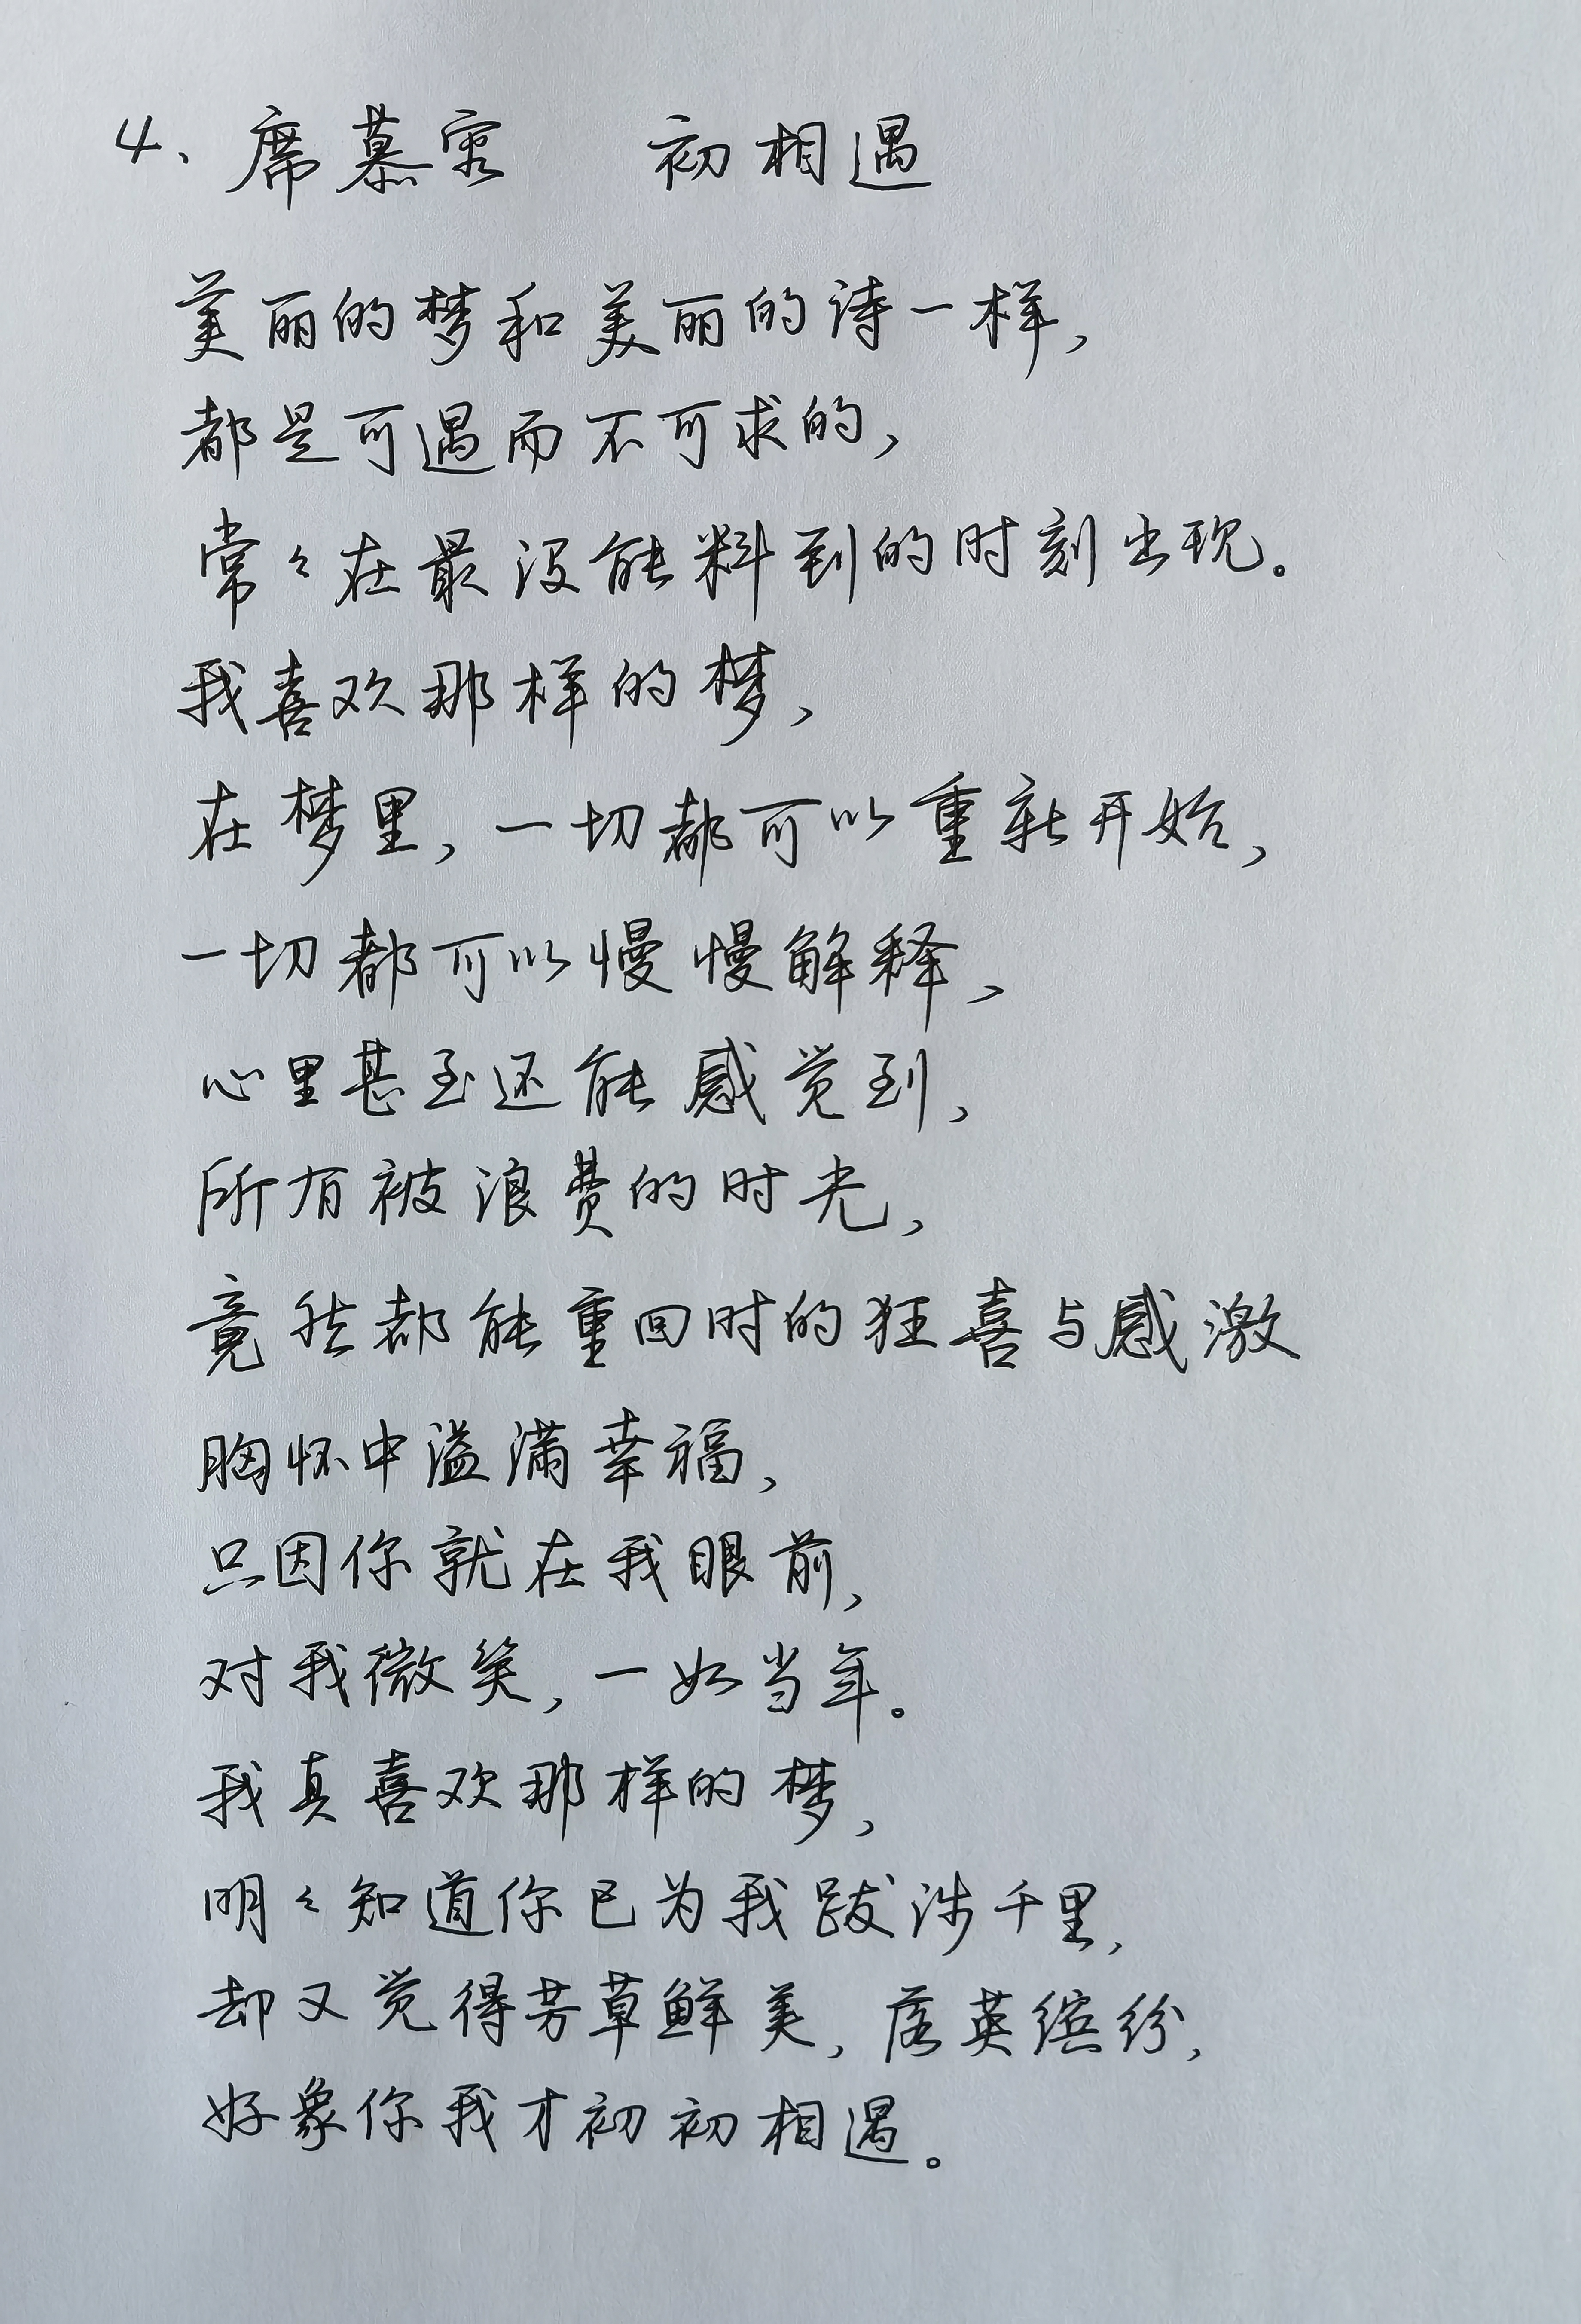 4、席慕容 初相遇
美丽的梦和美丽的诗一样，
都是可遇而不可求的，
常々在最没能料到的时刻出现。
我喜欢那样的梦，
在梦里，一切都可以重新开始，
一切都可以慢慢解释、
心里甚至还能感觉到，
所有被浪费的时光，
竟然都能重回时的狂喜与感激
胸怀中溢满幸福，
只因你就在我眼前，
对我微笑，一如当年。
我真喜欢那样的梦，
明々知道你已为我跋涉千里，
却又觉得芳草鲜美，落英缤纷，
好象你我才初初相遇。